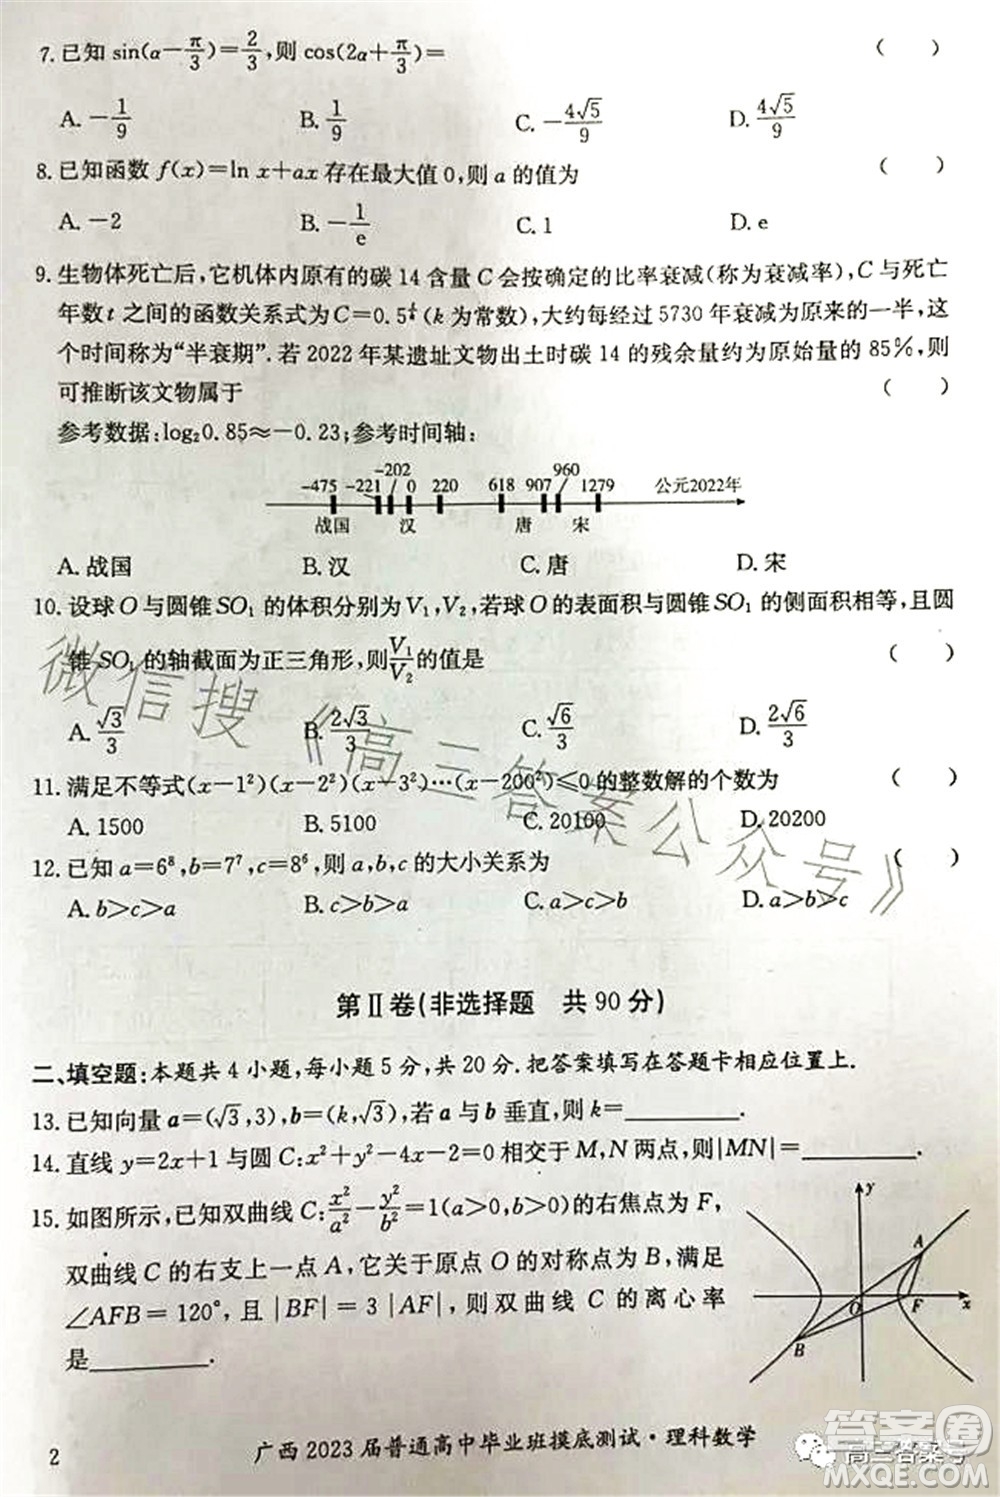 7. 已知 sin(α−π/3)=2/3,则 cos(2α+π/3)= ( )
A. −1/9 B. 1/9 C. −4√5/9 D. 4√5/9
8. 已知函数 f(x)=ln x+ax 存在最大值 0,则 a 的值为 ( )
A. −2 B. −1/e C. 1 D. e
9. 生物体死亡后,它机体内原有的碳 14 含量 C 会按确定的比率衰减(称为衰减率),C 与死亡
年数 t 之间的函数关系式为 C=0.5^(t/k) (k 为常数),大约每经过 5730 年衰减为原来的一半,这
个时间称为“半衰期”.若 2022 年某遗址文物出土时碳 14 的残余量约为原始量的 85%,则
可推断该文物属于 ( )
参考数据:log₂0.85≈−0.23;参考时间轴:
−475 −221 −202 0 220 618 907 960 1279 公元2022年
战国 汉 唐 宋
A. 战国 B. 汉 C. 唐 D. 宋
10. 设球 O 与圆锥 SO₁ 的体积分别为 V₁,V₂,若球 O 的表面积与圆锥 SO₁ 的侧面积相等,且圆
锥 SO₁ 的轴截面为正三角形,则 V₁/V₂ 的值是 ( )
A. √3/3 B. 2√3/3 C. √6/3 D. 2√6/3
11. 满足不等式(x−1²)(x−2²)(x−3²)…(x−200²)≤0 的整数解的个数为 ( )
A. 1500 B. 5100 C. 20100 D. 20200
12. 已知 a=6⁸,b=7⁷,c=8⁶,则 a,b,c 的大小关系为 ( )
A. b>c>a B. c>b>a C. a>c>b D. a>b>c
微信搜《高三答案公众号》
第Ⅱ卷(非选择题 共 90 分)
二、填空题:本题共 4 小题,每小题 5 分,共 20 分.把答案填写在答题卡相应位置上.
13. 已知向量 a=(√3,3),b=(k,√3),若 a 与 b 垂直,则 k=________.
14. 直线 y=2x+1 与圆 C:x²+y²−4x−2=0 相交于 M,N 两点,则|MN|=________.
15. 如图所示,已知双曲线 C:x²/a²−y²/b²=1(a>0,b>0)的右焦点为 F,
双曲线 C 的右支上一点 A,它关于原点 O 的对称点为 B,满足
∠AFB=120°,且|BF|=3|AF|,则双曲线 C 的离心率
是________.
y
A
O F x
B
2
广西 2023 届普通高中毕业班摸底测试·理科数学
高三答案号
答案圈
MXQE.COM